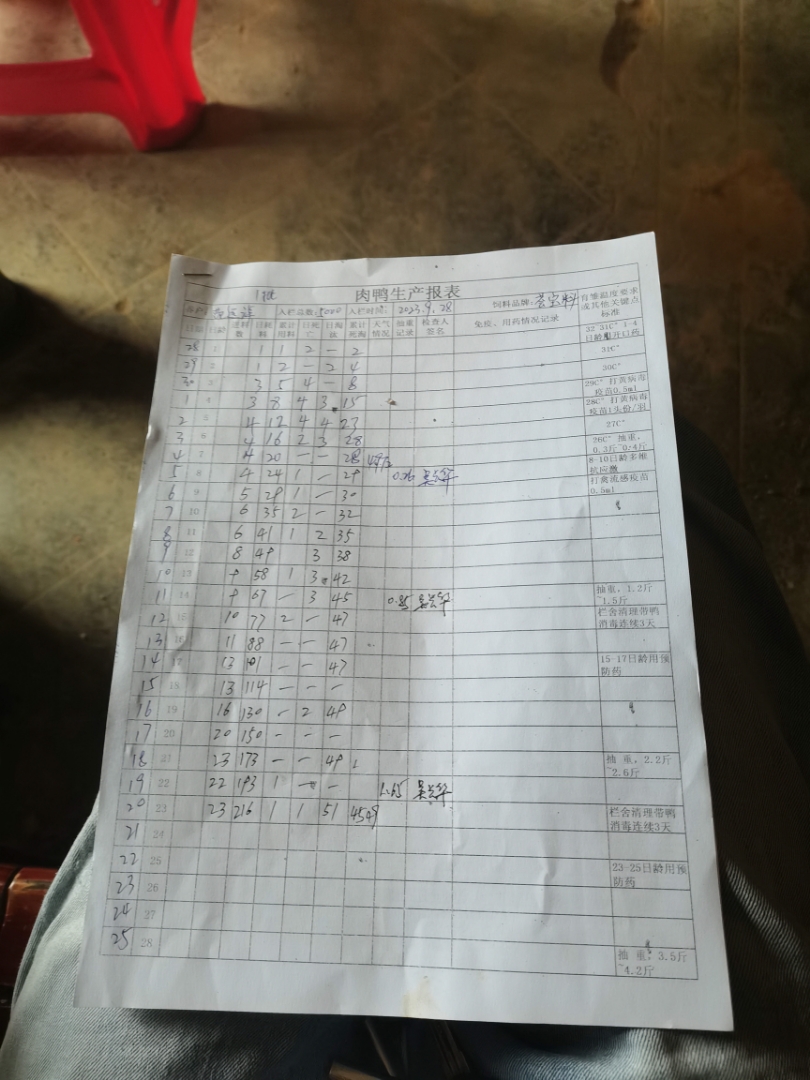 1批 肉鸭生产报表
入栏总数:5000 入栏时间: 2023.9.28 饲料品牌: 育雏温度要求或其他关键点标准
日期 日龄 进料数 日耗料 累计用料 日死亡 日淘汰 累计死淘 天气情况 抽重记录 检查人签名 免疫、用药情况记录
28 1 1 1 2 - 2 32°31C° 1-4日龄用开口药
29 2 1 2 - 2 4 31C°
30 3 3 5 4 - 8 30C°
1 4 3 8 4 3 15 29C° 打黄病毒疫苗0.5ml
2 5 4 12 4 4 23 28C° 打黄病毒疫苗1头份/羽
3 6 4 16 2 3 28 27C°
4 7 4 20 - - 28 26C° 抽重,0.3斤~0.4斤
5 8 4 24 1 - 29 8-10日龄多维抗应激 打禽流感疫苗0.5ml
6 9 5 29 1 - 30
7 10 6 35 2 - 32
8 11 6 41 1 2 35
9 12 8 49 3 38
10 13 9 58 1 3 42
11 14 9 67 - 3 45 0.85 抽重,1.2斤~1.5斤
12 15 10 77 2 - 47 栏舍清理带鸭消毒连续3天
13 16 11 88 - - 47
14 17 13 101 - - 47 15-17日龄用预防药
15 18 13 114 - - -
16 19 16 130 - 2 49
17 20 20 150 - - -
18 21 23 173 - - 49 抽重,2.2斤~2.6斤
19 22 22 193 1 - -
20 23 23 216 1 1 51 4549 栏舍清理带鸭消毒连续3天
21 24
22 25 23-25日龄用预防药
23 26
24 27
25 28 抽重,3.5斤~4.2斤